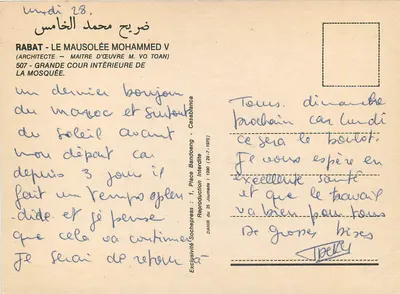 lundi 28.
ضريح محمد الخامس
RABAT - LE MAUSOLÉE MOHAMMED V
(ARCHITECTE - MAITRE D'ŒUVRE M. VO TOAN)
507 - GRANDE COUR INTÉRIEURE DE
LA MOSQUÉE.
un dernier bonjour
du maroc et surtout
du soleil avant
mon départ car
depuis 3 jours il
fait un temps splen-
dide et je pense
que cela va continuer
Je serai de retour
Exclusivité Sochepress : 1, Place Bandoeng - Casablanca
Reproduction Interdite
Tours dimanche
prochain car lundi
ce sera le boulot.
Je vous espère en
excellente santé
et que le travail
va bien pour tous
De grosses bises